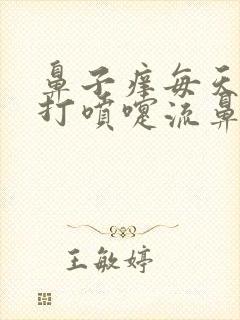 鼻子痒每天
打喷嚏流鼻
王敏婷